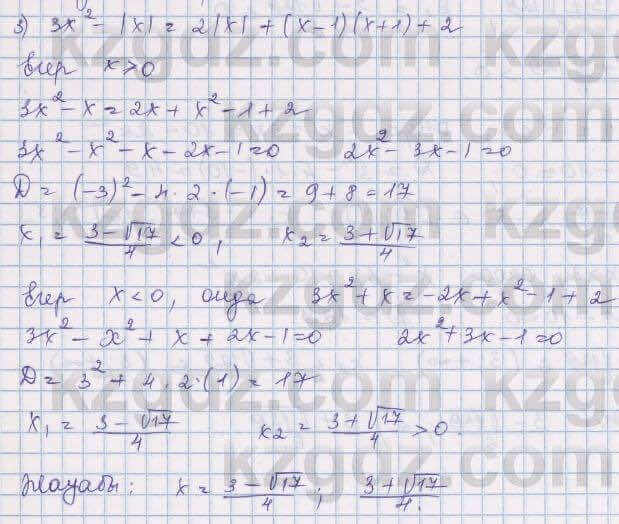 3) 3x² - |x| = 2|x| + (x-1)(x+1) + 2
Егер x>0
3x² - x = 2x + x² - 1 + 2
3x² - x² - x - 2x - 1 = 0 2x² - 3x - 1 = 0
D = (-3)² - 4·2·(-1) = 9 + 8 = 17
x₁ = (3-√17)/4 < 0, x₂ = (3+√17)/4
Егер x<0, онда 3x² + x = -2x + x² - 1 + 2
3x² - x² + x + 2x - 1 = 0 2x² + 3x - 1 = 0
D = 3² + 4·2·(1) = 17
x₁ = (3-√17)/4 x₂ = (3+√17)/4 > 0.
Жауабы: x = (3-√17)/4 ; (3+√17)/4.
kzgdz.com